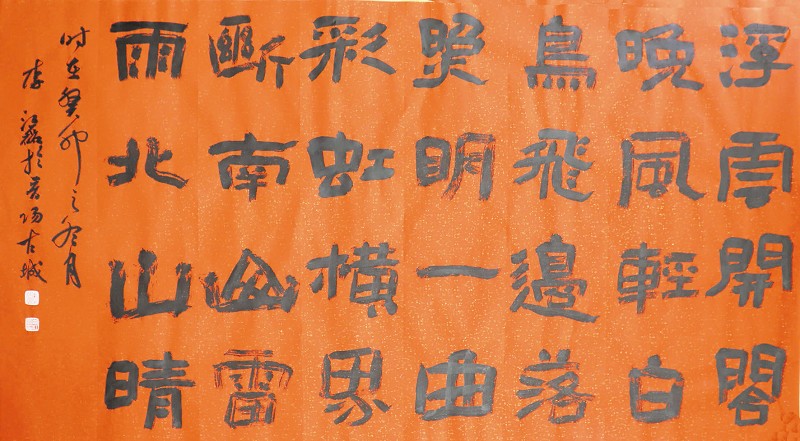 浮雲開閣
晚風輕白
鳥飛邊落
照明一曲
彩虹橫界
斷南山雷
雨北山晴
时在癸卯之冬月
李於晋陽古城